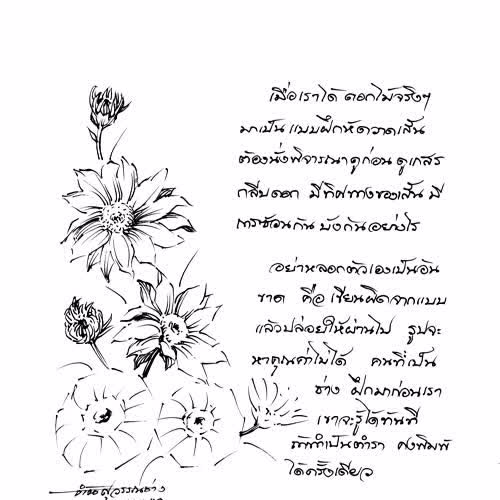 เมื่อเราได้ ดอกไม้จริงๆ
มาเป็น แบบฝึกหัดวาดเส้น
ต้องนั่งพิจารณาดูก่อน ดูเกสร
กลีบดอก มีทิศทางของเส้น มี
การซ้อนกัน บังกันอย่างไร
อย่าหลอกตัวเองเป็นอัน
ขาด คือ เขียนผิดจากแบบ
แล้วปล่อยให้ผ่านไป รูปจะ
หาคุณค่าไม่ได้ คนที่เป็น
ช่าง ฝึกมาก่อนเรา
เขาจะรู้ได้ทันที
ทำเป็นตำรา คงพิมพ์
ได้ครั้งเดียว